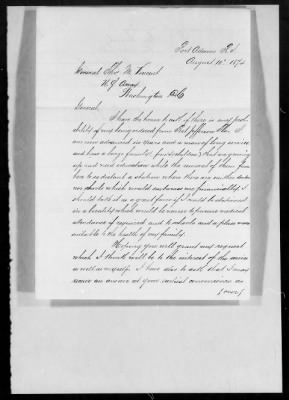 Fort Adams R.I.
August 10" 1874
General Thos M. Vincent
H.Q. Army
Washington D.C.
General.
I have the honor to ask if there is any
of my being moved from Fort Jefferson Fla. I
am now advanced in years and a man of long service
and have a large family
up and need education while the removal of them from
here to as distant a station where there are neither doctor
nor schools which would embarrass me financially I
should look it as a great favor if I could be stationed
in a locality which would be nearer to procure medical
attendance if required and to schools and a place more
suitable to the health of my family.
Hoping you will grant my request
which I think will be to the interest of the service
as well as myself. I have also to ask that I may
receive an answer at your earliest convenience as
(over)